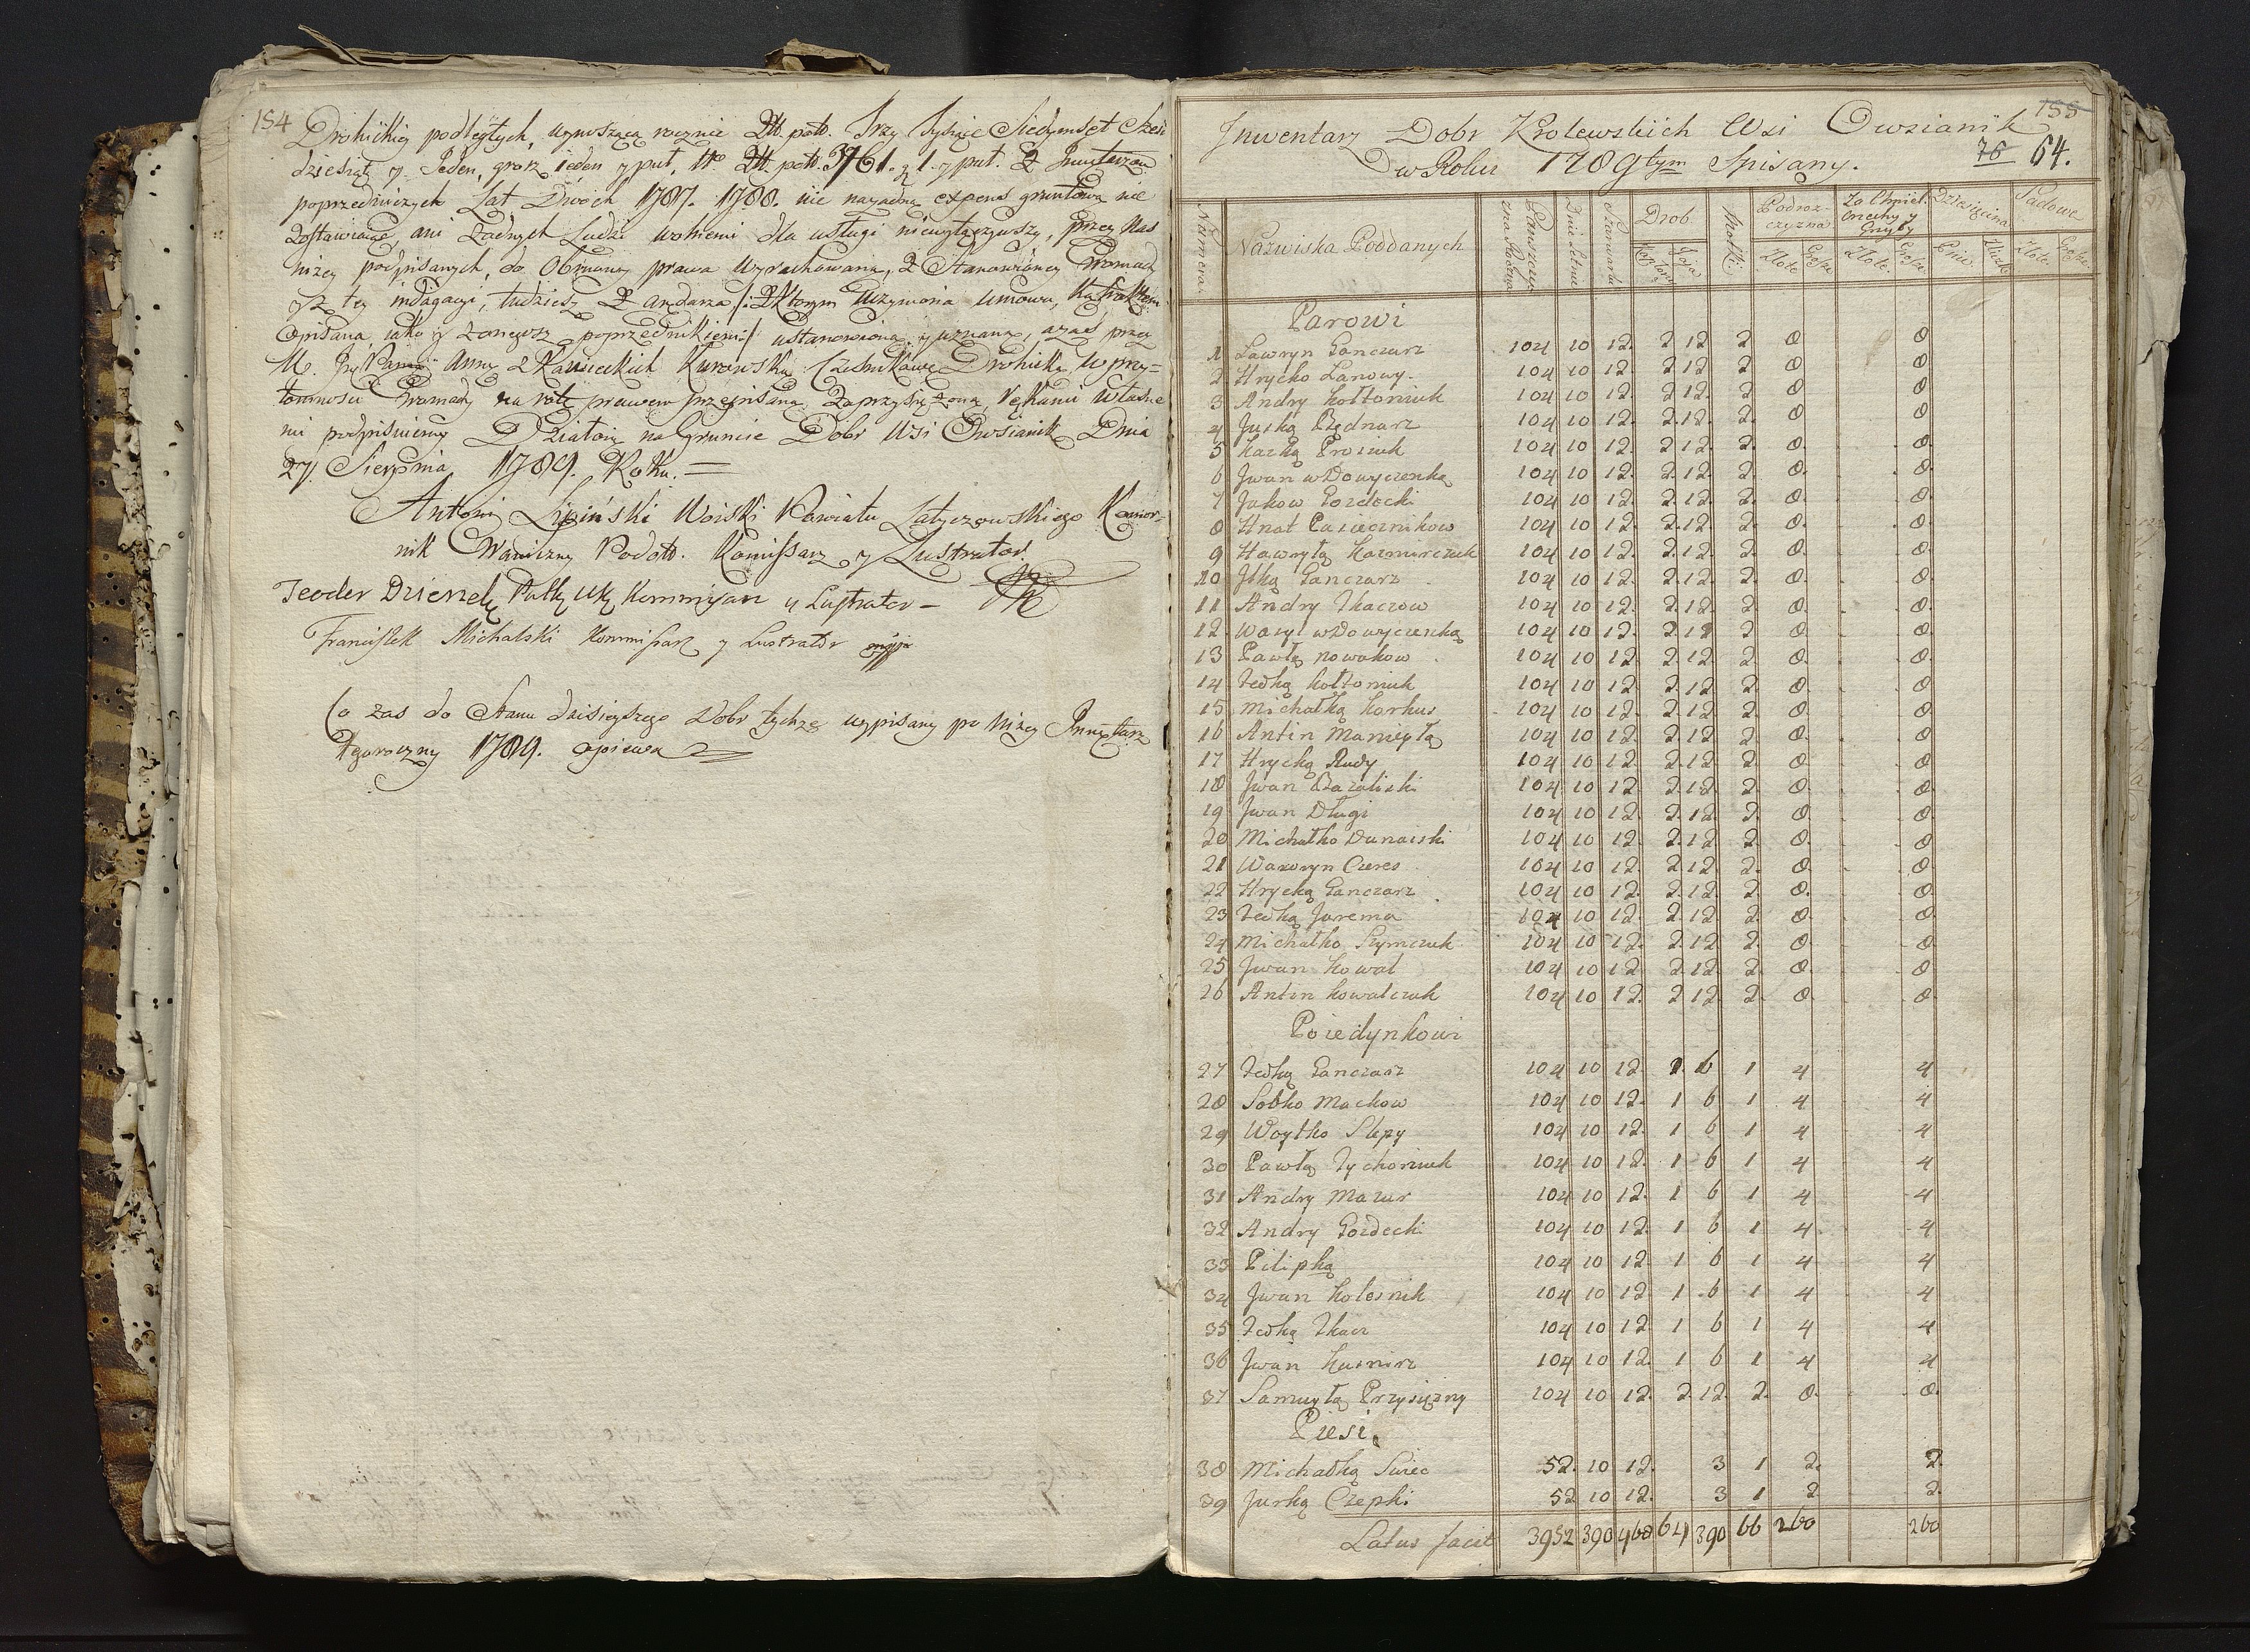 154 Drohickiey podległych, wynoszącą rocznie Zło. polo. Trzy Tysiące Siedymset Sześć
dziesiąt y Jeden, grosz ieden y puł, No Zło. polo. 3761. g 1. y puł. Z Inwentarzow
poprzedniczych Lat Dwóch 1787. 1788. nic na żadną expens gruntową nie
zostawiając, ani żadnych Ludzi wolnemi dla usługi niewyłączywszy, przez Nas
niżey podpisanych, do Obrony prawa wyrachowaną, z Stanowioney Gromady
y z tey indagacyi, tudziesz Z arędarza /: Z Ktorym Utrzymania Umowa, Kątraktem
opisana, iako y Zoneysz poprzednikiem :/ ustanowioną y uznaną, a zaś przez
W. Jey Panią Annę z Karsieckich Kurowską Cześnikowę Drohicką w przy=
tomnosci Gromady na rotę prawem przepisaną Zaprzysiężoną, Rękami Własne
mi podpisuiemy Działo się na Gruncie Dobr Wsi Owsianik Dnia
27. Sierpnia 1789. Roku. =
Antoni Lipiński Woiski Powiatu Latyczowskiego Komor-
nik Graniczny Podol. Komissarz y Lustrator
Teodor Dzierzek Pułk WK Kommissarz y Lustrator -
Franciszek Michalski Kommissarz y Lustrator mppa
Co zas do Stanu dzisieyszego Dobr tychże wypisany po Niżey Inwentarz
Tegoroczny 1789. opiewa
155
Inwentarz Dobr Krolewskich Wsi Owsianik
w Roku 1789tym Spisany. 76 64.
Numera. Nazwiska Poddanych Panszczyzna Roczna Dnie Letnie Szarwarki Drob Kapłony Jaja Motki Podroz-czyzna Złote Grosze Za Chmiel. Orzechy y Grzyby Złote Grosze Dziesięcina Pnie Ulicki Sadowe Złote Grosze
Parowi
1 Lawryn Ganczarz 104 10 12. 2 12 2 8 8
2 Hrycko Lanowy. 104 10 12. 2 12 2 8 8
3 Andry Kołtoniuk 104 10 12. 2 12. 2 8 8
4 Juską Bednarz 104 10 12. 2. 12. 2. 8 8
5 Kaską Prosiuk 104 10 12. 2 12. 2. 8. 8.
6 Jwan wDowyczenką 104 10 12. 2 12. 2. 8. 8.
7 Jakow Gozdecki 104 10 12. 2. 12. 2. 8. 8.
8 Hnat Pasiecznikow 104 10 12. 2. 12. 2. 8. 8.
9 Hawryłą Kazmirczuk 104 10 12. 2. 12. 2. 8. 8.
10 Jlką Ganczarz 104 10 12. 2. 12. 2. 8. 8.
11 Andry Tkaczow 104 10 12. 2. 12. 2. 8. 8.
12. Wasyl wDowyczenką 104 10 12. 2. 12 2 8. 8.
13 Pawłą Nowakow 104 10 12. 2. 12. 2 8. 8.
14 Fedką Kołtoniuk 104 10 12. 2 12 2 8. 8.
15 Michałką Korkus 104 10 12. 2. 12. 2 8. 8.
16 Antin Manięłą 104 10 12. 2 12 2 8 8
17 Hrycką Rudy 104 10 12 2 12 2 8 8
18 Jwan Bazaliski 104 10 12 2. 12 2. 8. 8.
19 Jwan Długi 104 10 12. 2 12 2. 8 8.
20 Michałko Dunaiski 104 10 12. 2. 12 2. 8. 8.
21 Wawryn Ceres 104 10 12. 2 12 2. 8. 8.
22 Hrycką Ganczarz 104 10 12. 2. 12 2 8. 8.
23 Fedką Jarema 104 10 12. 2 12 2. 8. 8.
24 Michałko Szymczuk 104 10 12. 2. 12 2. 8. 8.
25 Jwan Kowal 104 10 12 2. 12. 2. 8. 8
26 Antin Kowalczuk 104 10 12. 2 12 2. 8. 8.
Poiedynkowi
27 Fedką Ganczarz 104 10 12. 1. 6 1 4 4
28 Sobko Mackow 104 10 12. 1 6 1 4 4
29 Woytko Slepy 104 10 12. 1 6 1 4 4
30 Pawłą Tychoniuk 104 10 12. 1 6 1 4 4
31 Andry Mazur 104 10 12. 1 6 1 4 4
32 Andry Gozdecki 104 10 12. 1 6 1 4 4
33 Pilipką 104 10 12 1 6 1 4 4
34 Jwan Kolesnik 104 10 12 1 6 1 4 4
35 Fedką Tkacz 104 10 12 1 6 1 4 4
36 Jwan Kusnirz 104 10 12. 1 6 1 4 4
37 Samuyłą Przysiężny 104 10 12. 2. 12. 2. 8. 8.
Piesi
38 Michałką Swiec 52. 10 12. 3 1 2. 2.
39 Jurką Czepki 52 10 12. 3 1 2 2.
Latus facit 3952 390 468 64 390 66 260 260